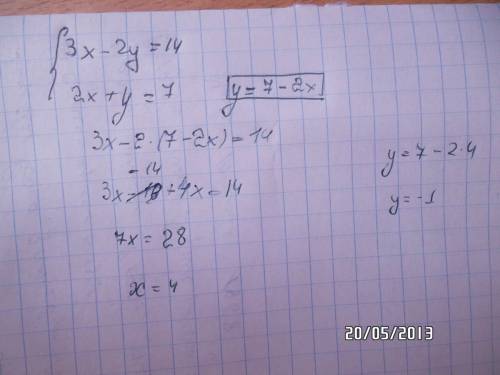 3x - 2y = 14
2x + y = 7
y = 7 - 2x
3x - 2 · (7 - 2x) = 14
3x - 14 + 4x = 14
7x = 28
x = 4
y = 7 - 2 · 4
y = -1
20/05/2013